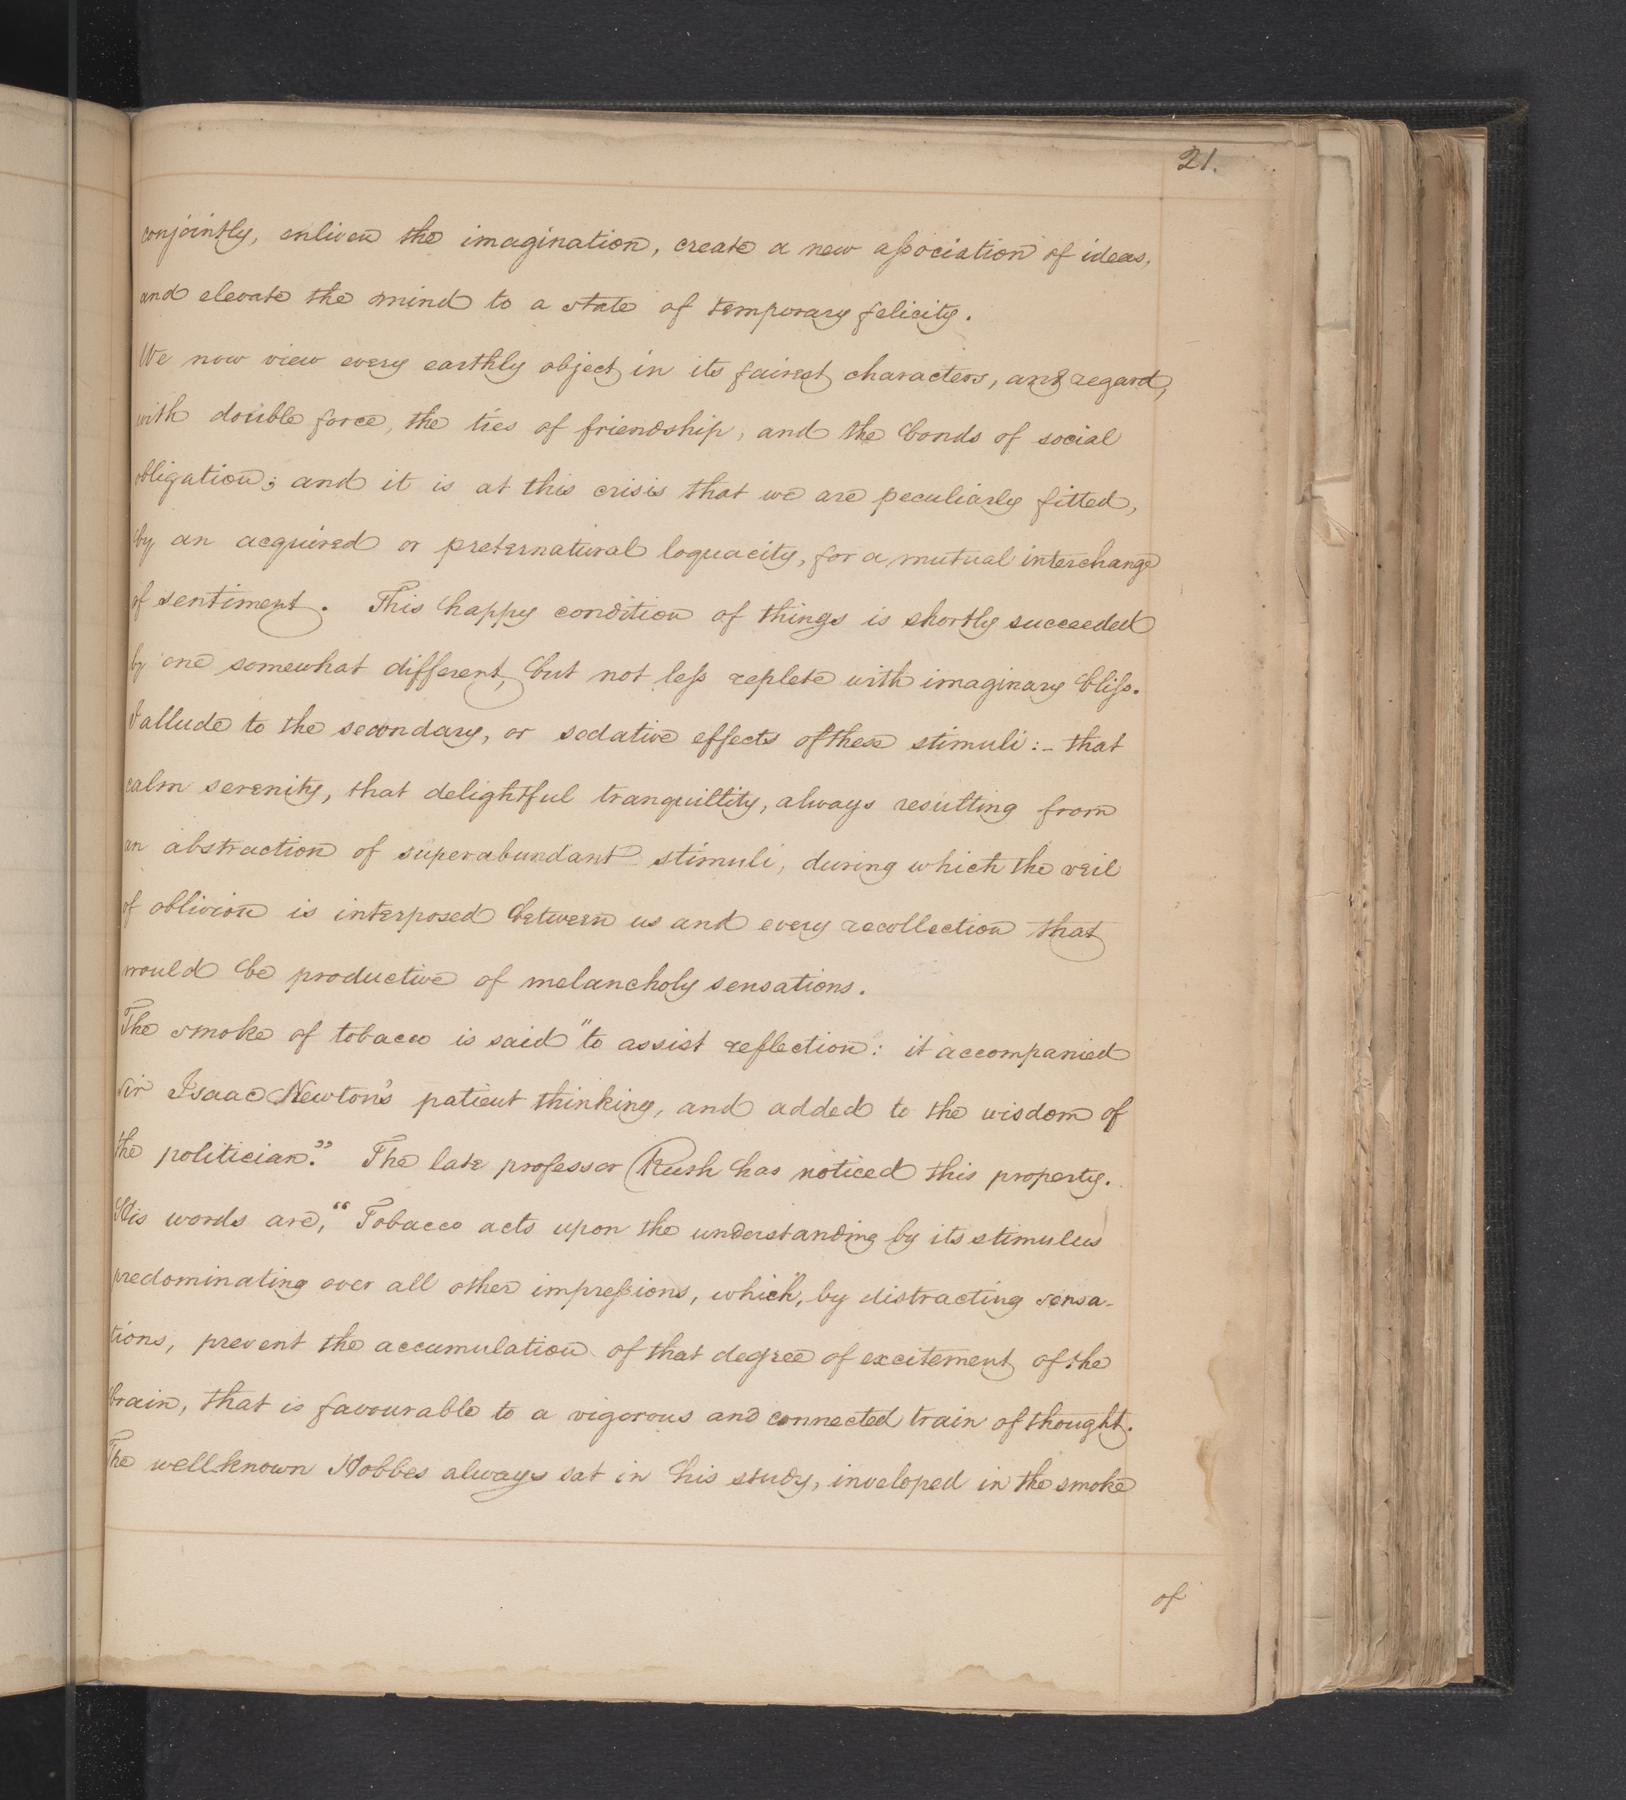 21.
conjointly, enliven the imagination, create a new aſsociation of ideas,
and elevate the mind to a state of temporary felicity.
We now view every earthly object in its fairest characters, and regard,
with double force, the ties of friendship, and the bonds of social
obligation; and it is at this crisis that we are peculiarly fitted,
by an acquired or preternatural loquacity, for a mutual interchange
of sentiment. This happy condition of things is shortly succeeded
by one somewhat different, but not leſs replete with imaginary bliſs.
I allude to the secondary, or sedative effects of these stimuli:- that
calm serenity, that delightful tranquillity, always resulting from
an abstraction of superabundant stimuli, during which the veil
of oblivion is interposed between us and every recollection that
would be productive of melancholy sensations.
The smoke of tobacco is said "to assist reflection: it accompanied
Sir Isaac Newton's patient thinking, and added to the wisdom of
the politician." The late professor Rush has noticed this property.
His words are, "Tobacco acts upon the understanding by its stimulus
predominating over all other impreſsions, which", by distracting sensa-
tions, prevent the accumulation of that degree of excitement of the
brain, that is favourable to a vigorous and connected train of thought.
The well known Hobbes always sat in his study, inveloped in the smoke
of